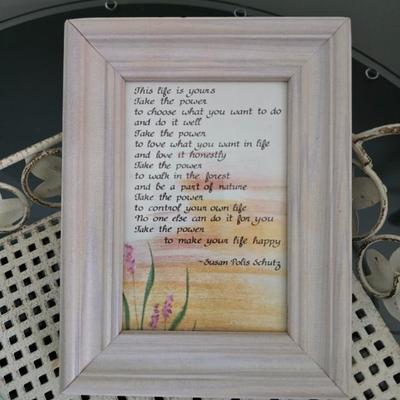 This life is yours
Take the power
to choose what you want to do
and do it well
Take the power
to love what you want in life
and love it honestly
Take the power
to walk in the forest
and be a part of nature
Take the power
to control your own life
No one else can do it for you
Take the power
to make your life happy
~Susan Polis Schutz